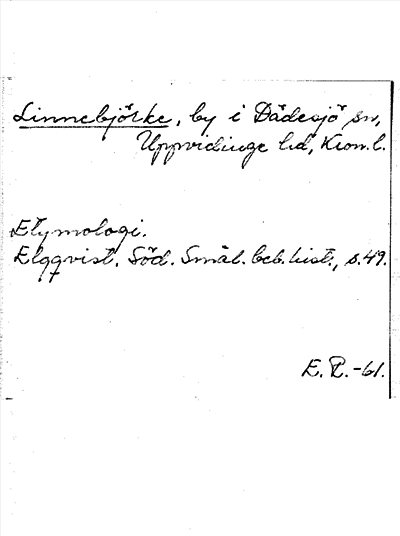 Linnebjörke, by i Dädesjö sn,
Uppvidinge hd, Kron. l.
Etymologi.
Elgqvist. Söd. Smål. beb. hist., s. 49.
E. P. -61.